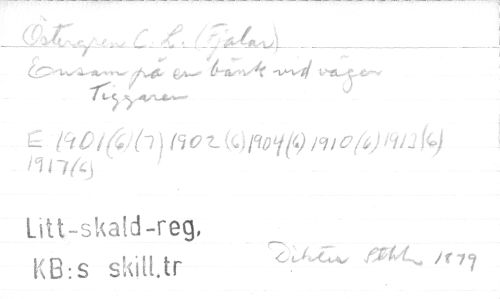 Östergren C. L. (Fjalar)
Ensam på en bänk vid vägen
Tiggaren
E 1901(6)(7) 1902(6) 1904(6) 1910(6) 1912(6)
1917(6)
Litt-skald-reg.
KB:s skill.tr
Dikter Sthlm 1879